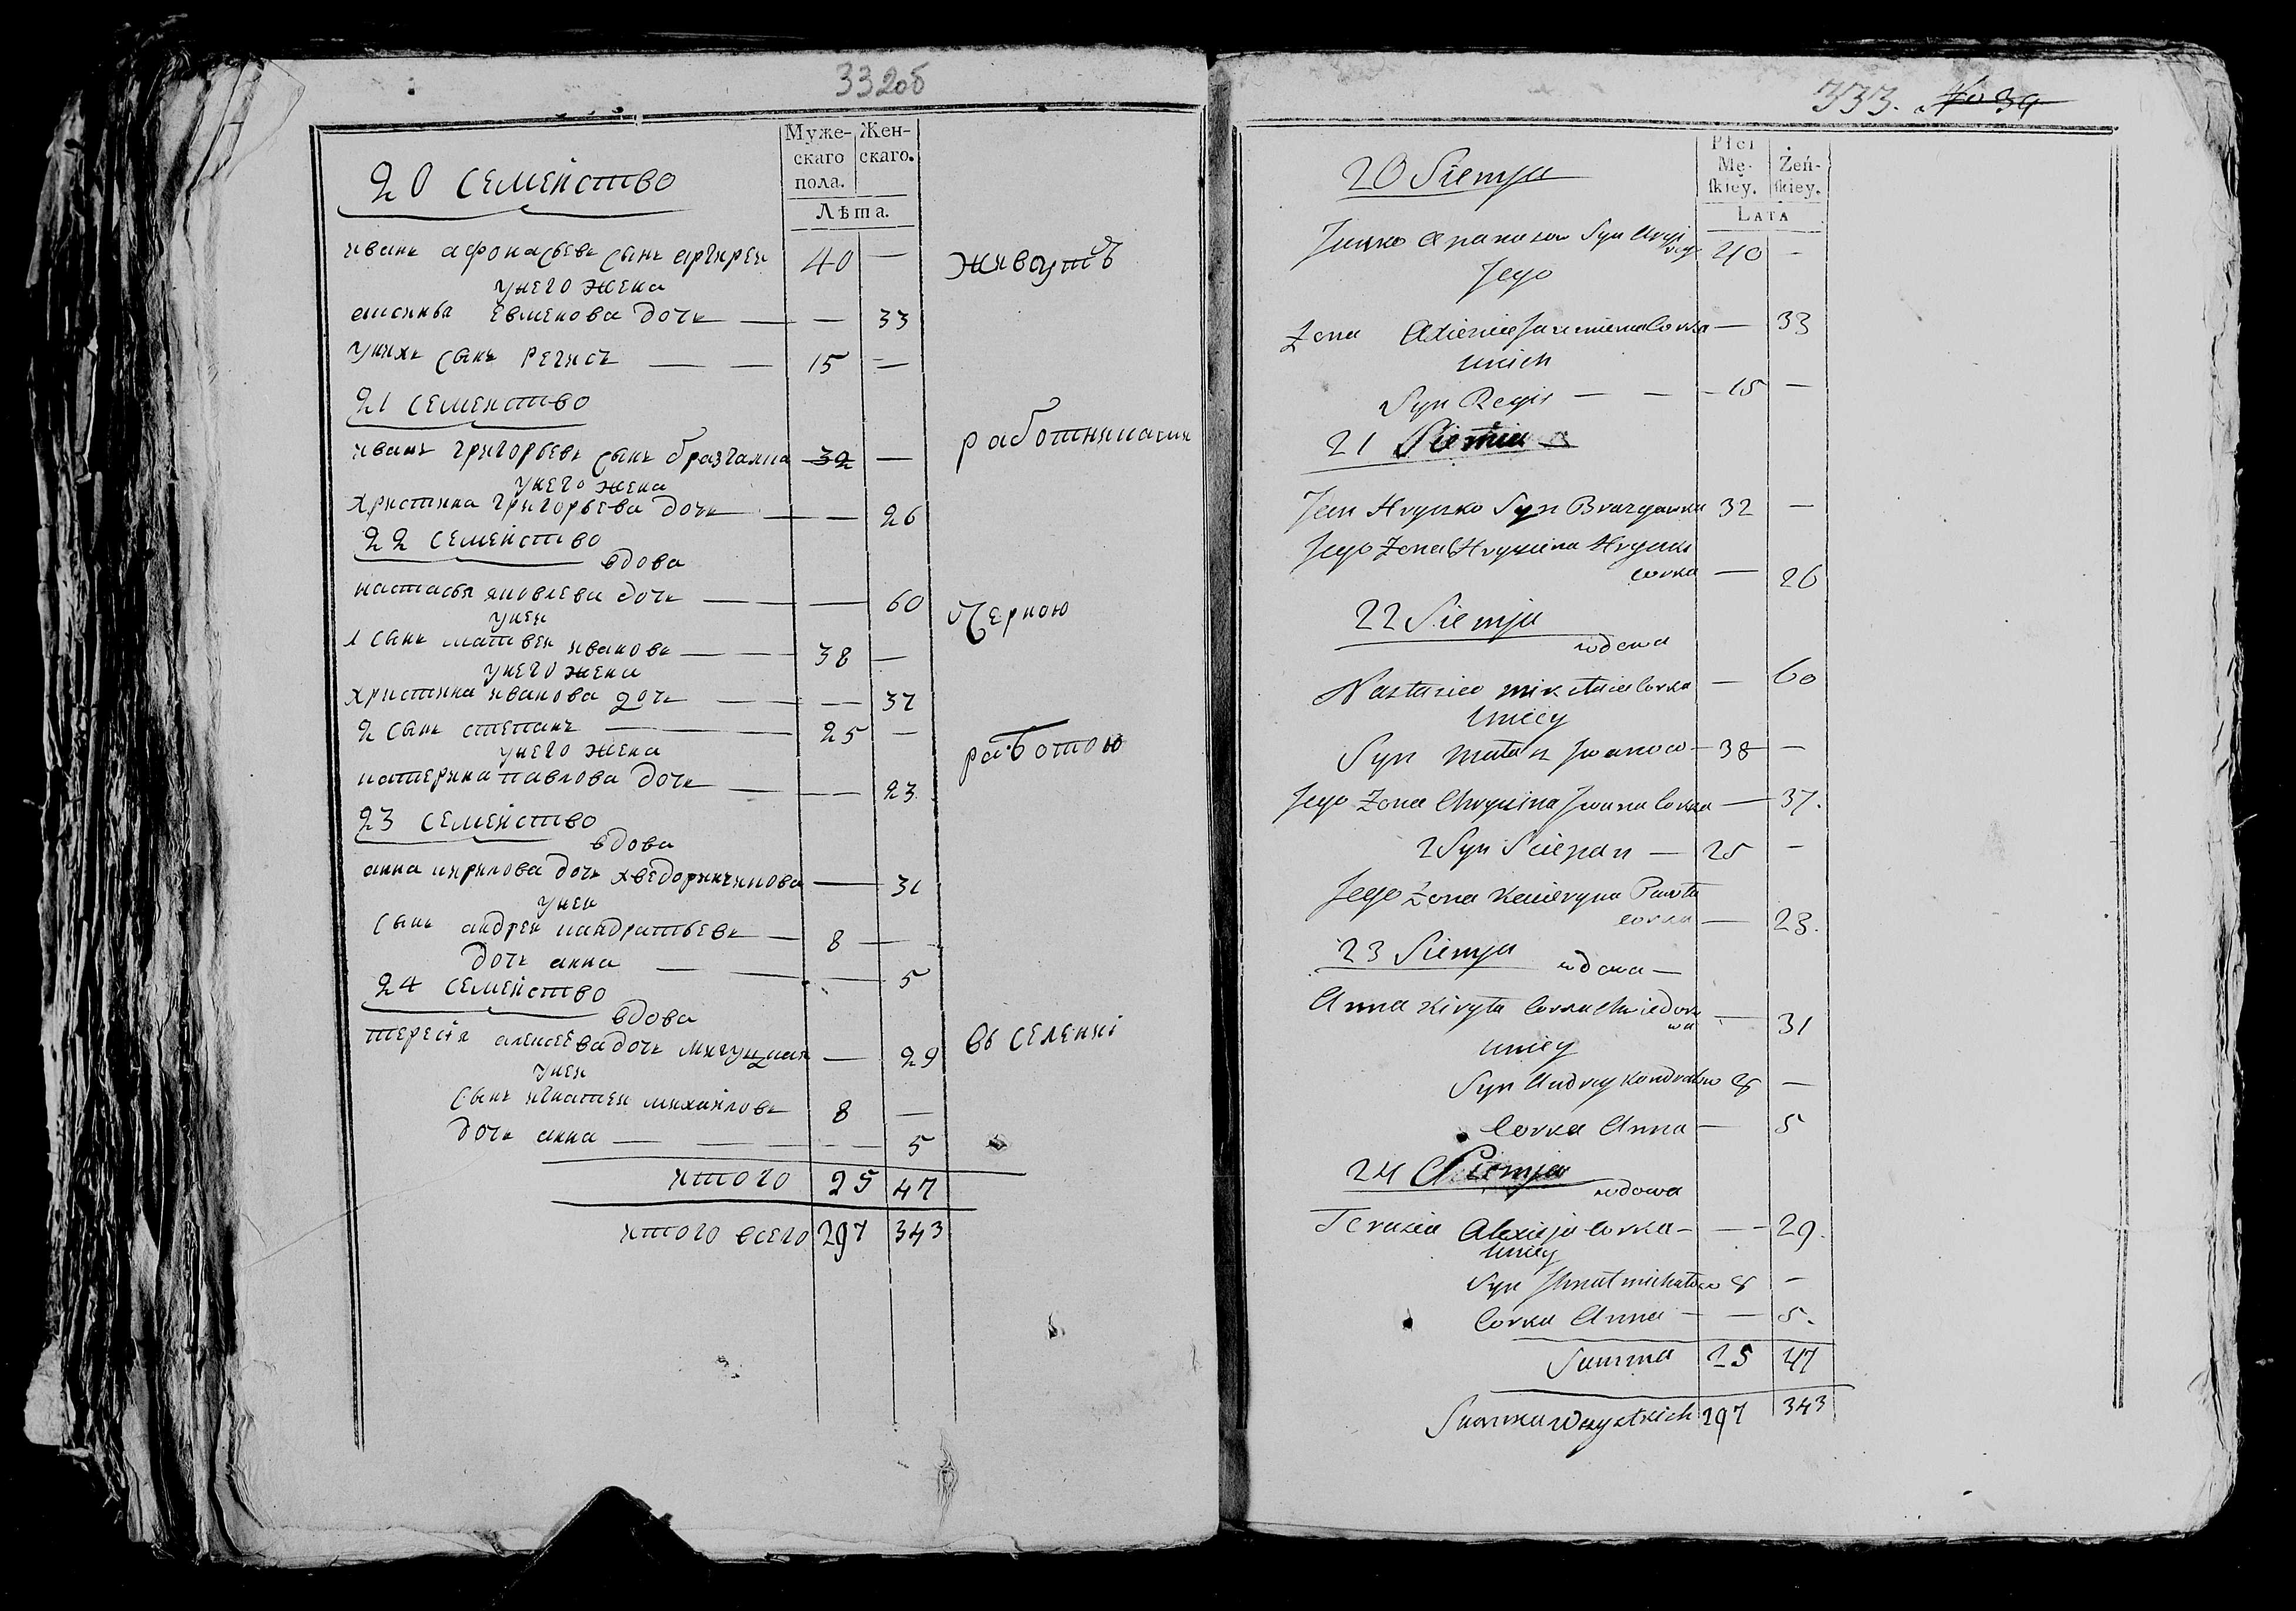 332об
Муже-
скаго
пола.
Жен-
скаго.
Лѣта.
20 семейство
иванъ афонасьевъ сынъ 40 —
унего жена
евменова дочь — — 33
унихъ сынъ регисъ — — 15 —
живутъ
21 семейство
иванъ григорьевъ сынъ 32 —
унего жена
христина григорьева дочь — — 26
22 семейство
вдова
настасья яковлева дочь — — 60
уней
1 сынъ матвей ивановъ — — 38 —
унего жена
христина иванова дочь — — 37
2 сынъ степанъ — 25 —
унего жена
катерина павлова дочь — — 23
работою
23 семейство
вдова
анна кирилова дочь — 31
уней
сынъ андрей кандратьевъ — 8 —
дочь анна — — — 5
24 семейство
вдова
тересія алексѣева дочь — 29
въ селеніи
уней
сынъ игнатей михайловъ 8 —
дочь анна — — — 5
итого 25 47
итого всего 297 343
333. No 39
Płci
Mę-
ſkiey.
Żeń-
ſkiey.
LATA
20 Siemja
Syn 40 —
Jego
Zona corka — 33
unich
Syn Regis — — 15 —
21 Siemia
Jan Hryszko Syn 32 —
Jego Zona
corka — 26
22 Siemja
wdowa
Nastazia corka — 60
uniey
Syn Iwanow — 38 —
Jego Zona Chrystina Iwana Corka — 37.
2 Syn Sciepan — 25 —
Jego Zona Kacieryna Pawła
corka — 23.
23 Siemja wdowa —
Anna Kiryła Corka
— 31
uniey
Syn Andrey Kondratow 8 —
Corka Anna — 5
24 Siemja
wdowa
Terezia Alexieja corka — — 29.
uniey
Syn Ihnat Michałow 8 —
Corka Anna — — 5.
Summa 25 47
Summa Wszystkich 297 343